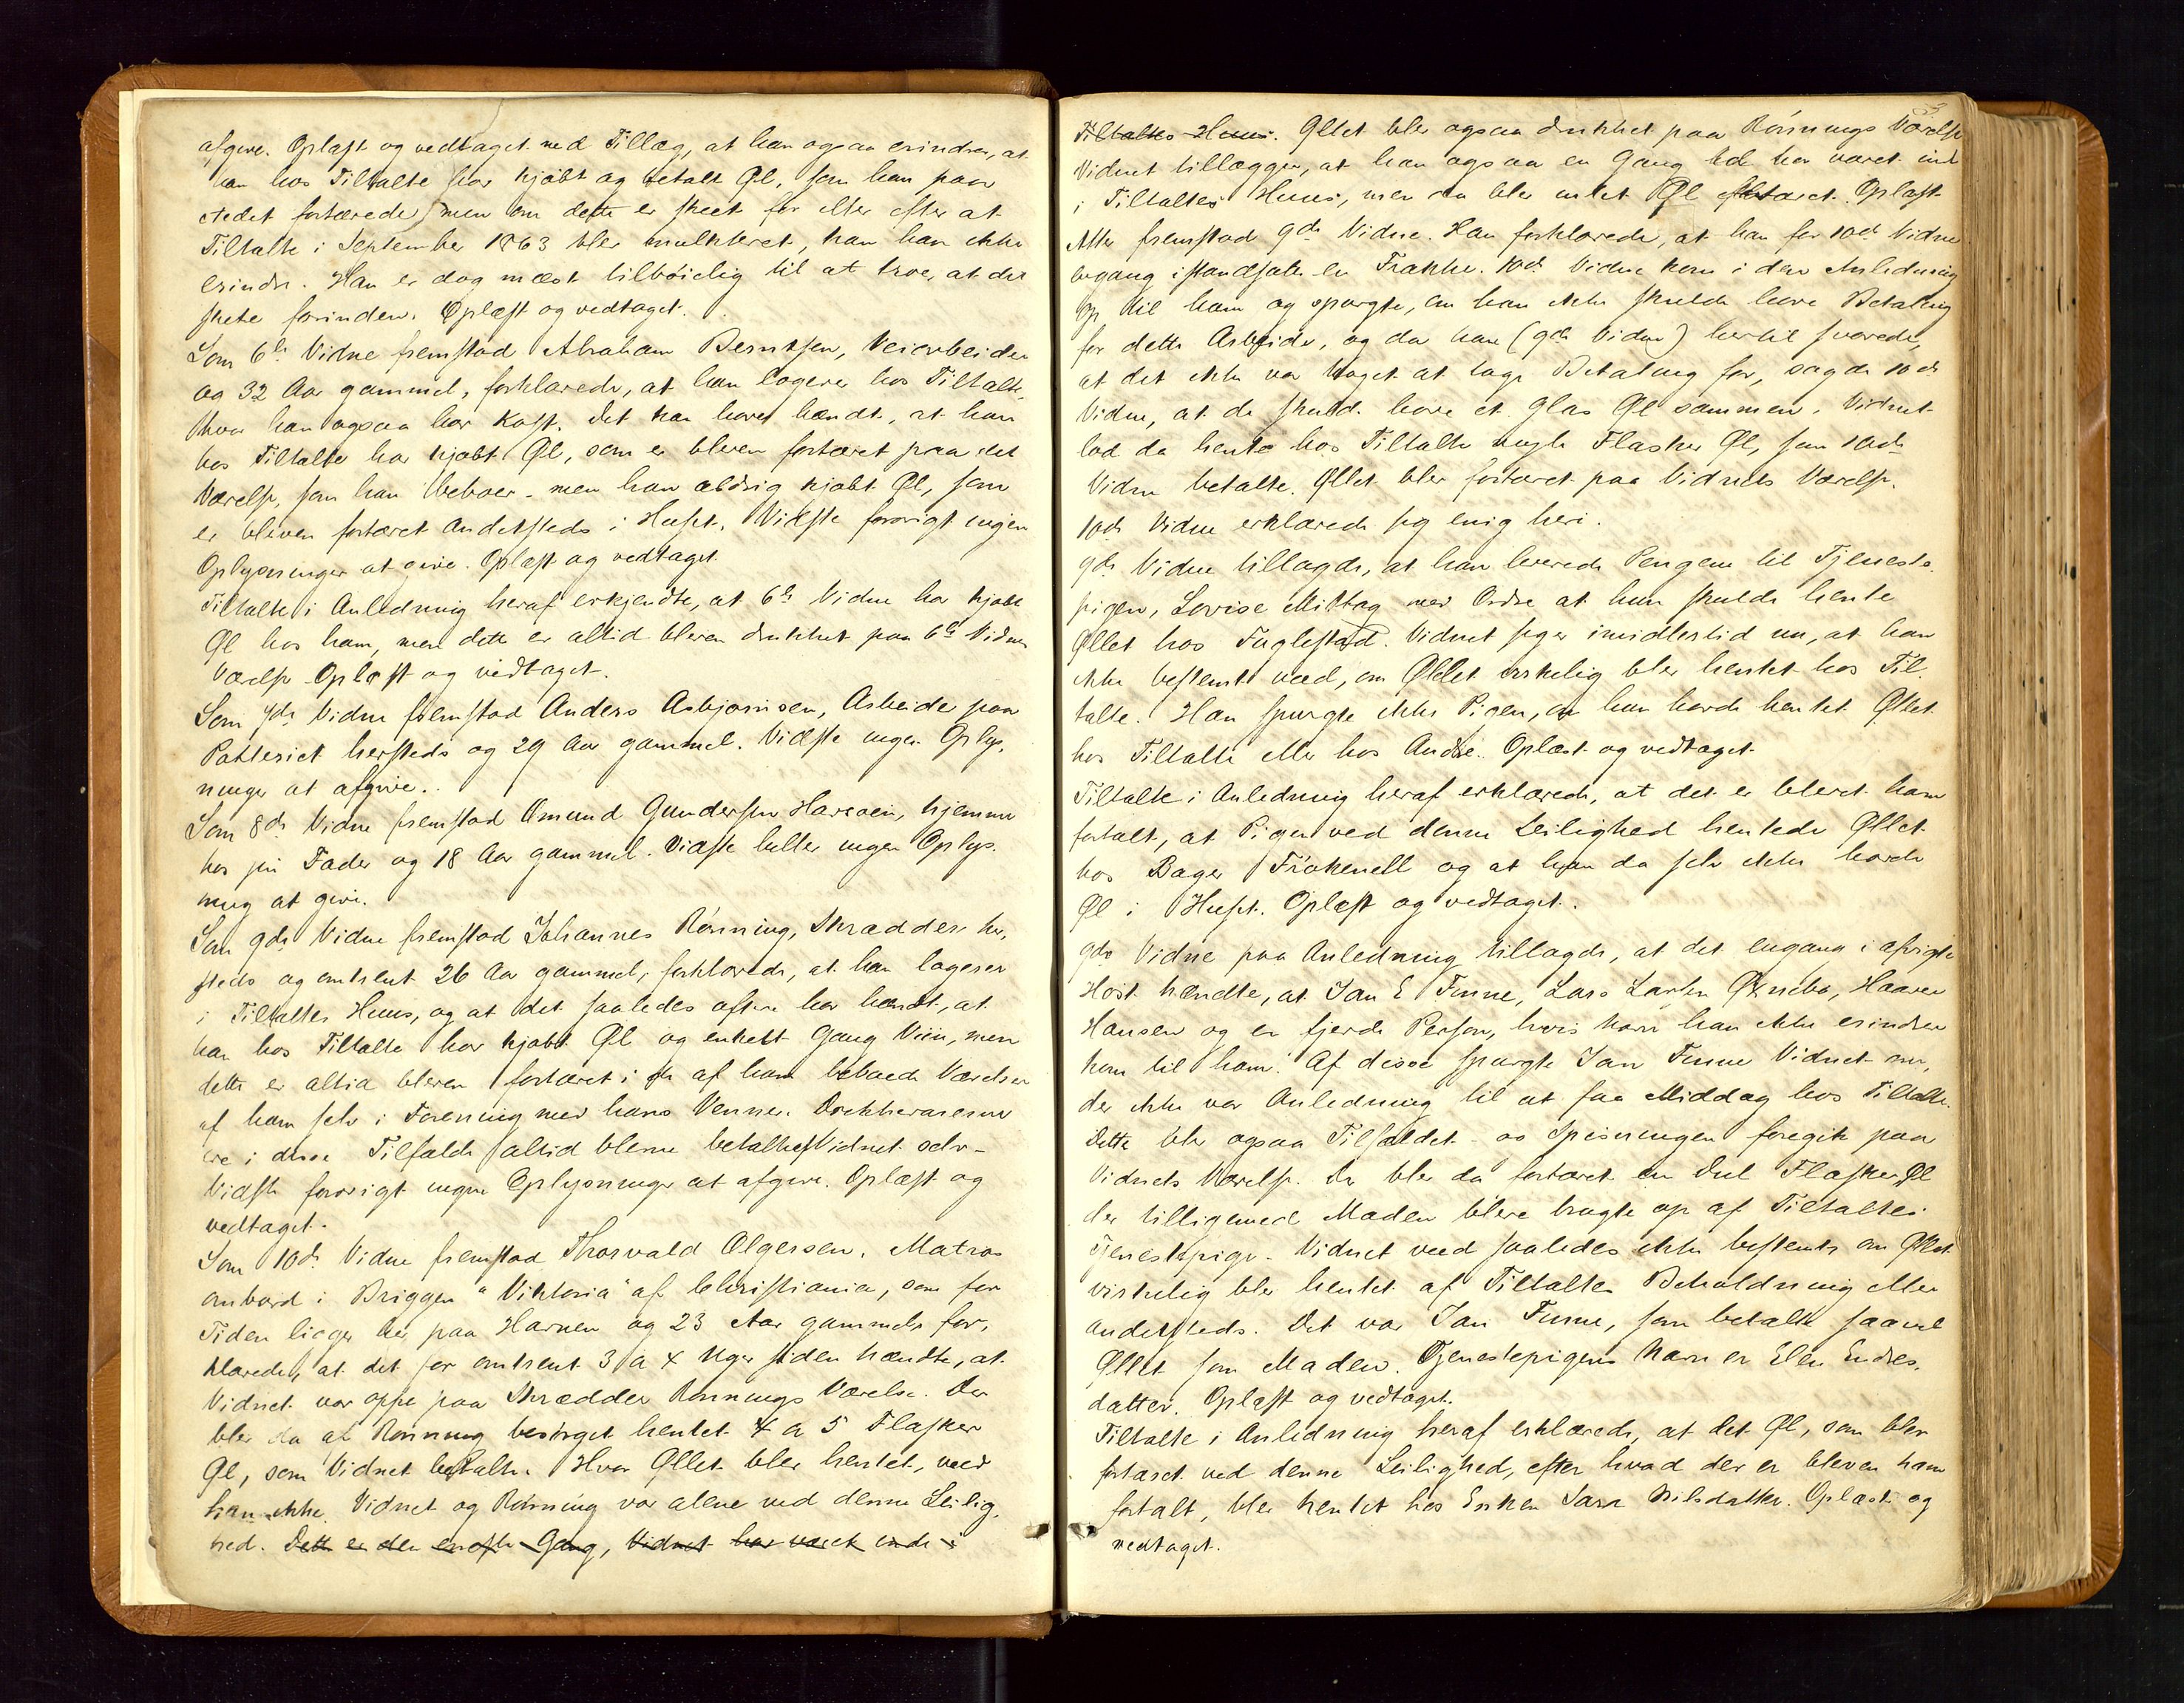 afgive. Oplæst og vedtaget med Tillæg, at han ogsaa erindrer, at
han hos Tiltalte har kjøbt og betalt Øl, som han paa
stedet fortærede, men om dette er skeet før eller efter at
Tiltalte i September 1863 blev mulkteret, kan han ikke
erindre. Han er dog mæst tilbøielig til at troe, at det
skete forinden. Oplæst og vedtaget.
Som 6te Vidne fremstod Abraham Berntsen, Veiarbeider
og 32 Aar gammel, forklarede, at han logerer hos Tiltalte,
hvor han ogsaa har Kost. Det kan have hændt, at han
hos Tiltalte har kjøbt Øl, som er bleven fortæret paa det
Værelse, som han beboer - men han aldrig kjøbt Øl, som
er bleven fortæret andetsteds i Huset. Vidste forøvrigt ingen
Oplysninger at give. Oplæst og vedtaget.
Tiltalte i Anledning heraf erkjendte, at 6te Vidne har kjøbt
Øl hos ham, men dette er altid bleven drukket paa 6te Vidnes
Værelse. Oplæst og vedtaget.
Som 7de Vidne fremstod Anders Asbjørnsen, Arbeider paa
Potteriet hersteds og 29 Aar gammel. Vidste ingen Oplys-
ninger at afgive.
Som 8de Vidne fremstod Omund Gundersen, hjemme
hos sin Fader og 18 Aar gammel. Vidste heller ingen Oplys-
ning at give.
Som 9de Vidne fremstod Johannes Rønning, Skrædder her-
steds og omtrent 26 Aar gammel, forklarede, at han logerer
i Tiltaltes Huus, og at det saaledes oftere har hændt, at
han hos Tiltalte har kjøbt Øl og enkelt Gang Viin, men
dette er altid bleven fortæret i de af ham beboede Værelser
af ham selv i Forening med hans Venner. Drikkevarerne
ere i disse Tilfælde altid blevne betalte af Vidnet selv -
Vidste forøvrigt ingen Oplysninger at afgive. Oplæst og
vedtaget.
Som 10de Vidne fremstod Thorvald Olgersen, Matros
ombord i Briggen "Viktoria" af Christiania, som for
Tiden ligger her paa Havnen og 23 Aar gammel, for-
klarede, at det for omtrent 3 a 4 Uger siden hændte, at
Vidnet var oppe paa Skrædder Rønnings Værelse. Der
blev da af Rønning besørget hentet 4 a 5 Flasker
Øl, som Vidnet betalte. Hvor Øllet blev hentet, veed
han ikke. Vidnet og Rønning var alene ved denne Leilig-
hed. Dette er den eneste Gang, Vidnet har været inde i
Tiltaltes Huus. Øllet blev ogsaa drukket paa Rønnings Værelse
Vidnet tillægger, at han ogsaa en Gang har været ind
i Tiltaltes Huus, men da blev intet Øl fortæret. Oplæst
Atter fremstod 9de Vidne. Han forklarede, at han for 10de Vidne
engang istandsatte en Frakke. 10de Vidne kom i den Anledning
op til ham og spurgte, om han ikke skulde have Betaling
for dette Arbeide, og da han (9de Vidne) hertil svarede,
at det ikke var Noget at tage Betaling for, sagde 10de
Vidne, at de skulde have et Glas Øl sammen. Vidnet
lod da hente hos Tiltalte nogle Flasker Øl, som 10de
Vidne betalte. Øllet blev fortæret paa Vidnets Værelse.
10de Vidne erklærede sig enig heri.
9de Vidne tillagde, at han leverede Pengene til Tjeneste-
pigen, Lovise Mittag med Ordre at hun skulde hente
Øllet hos Fuglestad. Vidnet siger imidlertid nu, at han
ikke bestemt veed, om Øllet virkelig blev hentet hos Til-
talte. Han spurgte ikke Pigen, om hun havde hentet Øllet
hos Tiltalte eller hos Andre. Oplæst og vedtaget.
Tiltalte i Anledning heraf erklærede, at det er blevet ham
fortalt, at Pigen ved denne Leilighed hentede Øllet
hos Bager og at han da selv ikke havde
Øl i Huset. Oplæst og vedtaget.
9de Vidne paa Anledning tillagde, at det engang i afvigte
Høst hændte, at Jan E Finne, Lars Larsen Haaver
Hansen og en fjerde Person, hvis Navn han ikke erindrer
kom til ham. Af disse spurgte Jan Finne Vidnet om,
der ikke var Anledning til at faa Middag hos Tiltalte.
Dette blev ogsaa Tilfældet - og Spisningen foregik paa
Vidnets Værelse. Der blev da fortæret en Deel Flasker Øl
der tilligemed Maden bleve bragte op af Tiltaltes
Tjenestepige. Vidnet veed saaledes ikke bestemt om Øllet
virkelig blev hentet af Tiltaltes Beholdning eller
andetsteds. Det var Jan Finne, som betalte saavel
Øllet som Maden. Tjenestepigens Navn er Elen Endres-
datter. Oplæst og vedtaget.
Tiltalte i Anledning heraf erklærede, at det Øl, som blev
fortæret ved denne Leilighed, efter hvad der er bleven ham
fortalt, blev hentet hos Enken Sara Nilsdatter. Oplæst og
vedtaget.